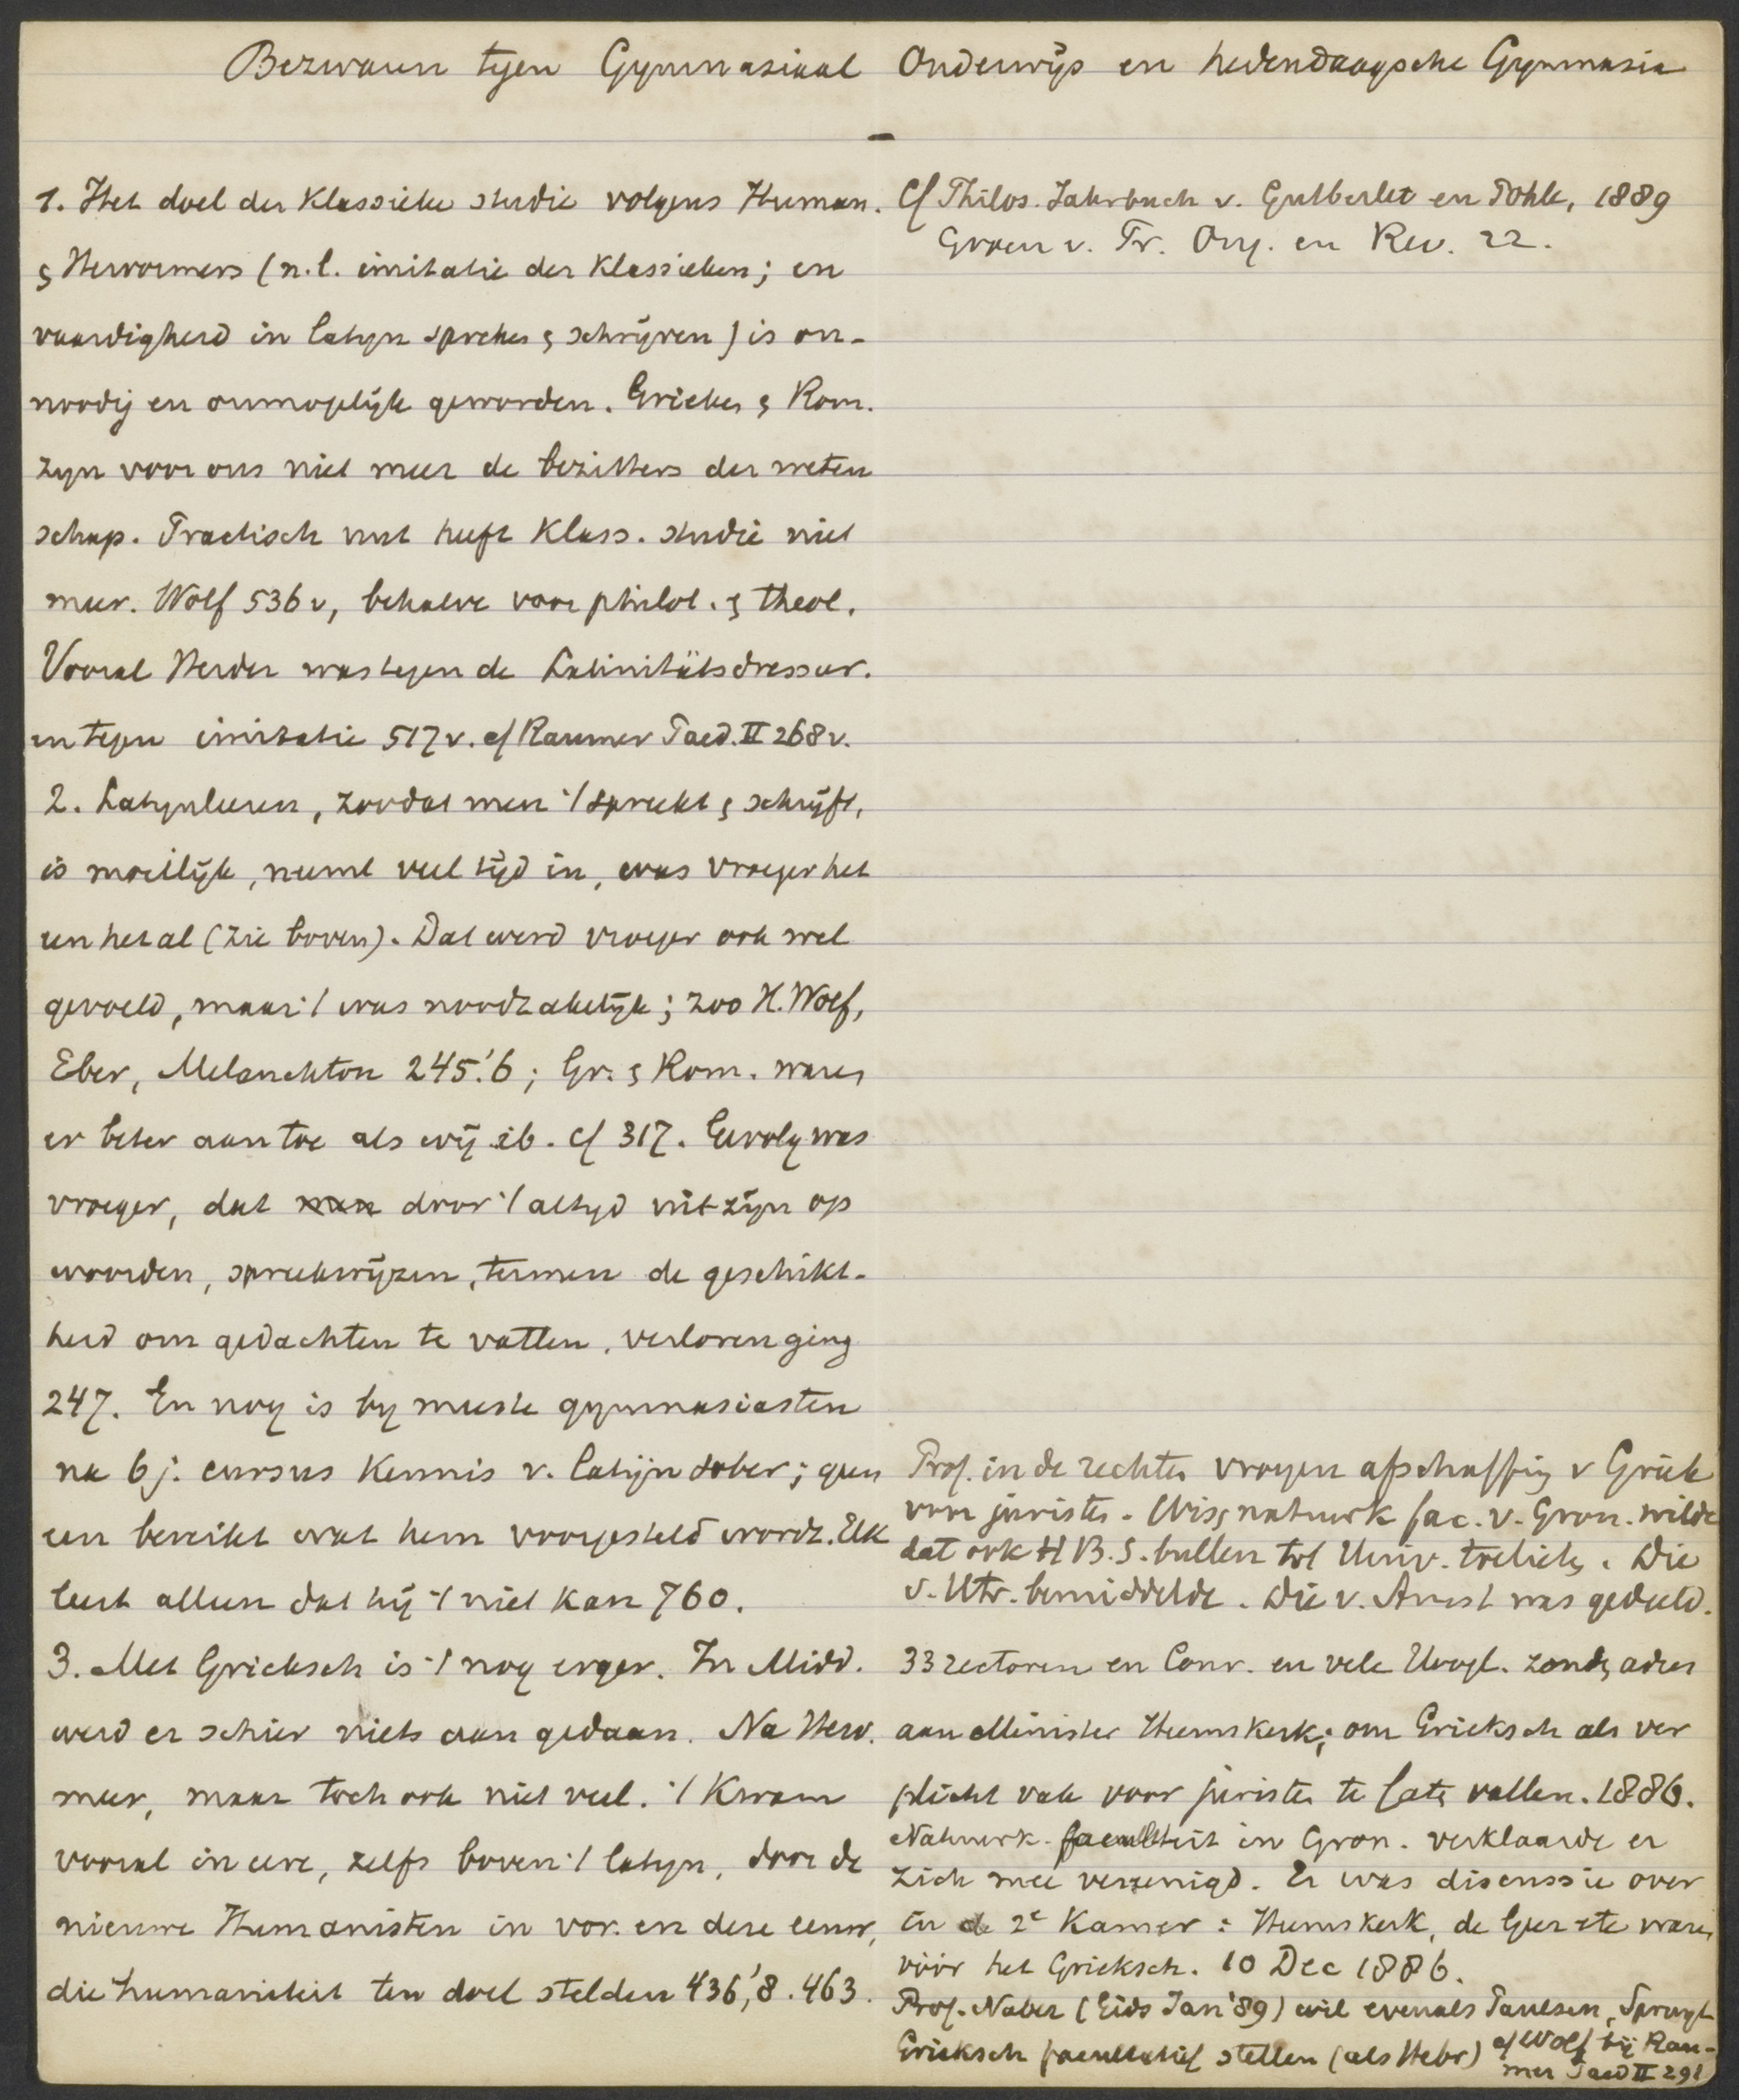 Bezwaren tegen Gymnasiaal Onderwijs en hedendaagsche Gymnasia
1. Het doel der klassieke studie volgens Human.
& Hervormers (n.l. imitatie der klassieken; en
vaardigheid in latyn spreken & schrijven) is on-
noodig en onmogelijk geworden. Grieken & Rom.
zyn voor ons niet meer de bezitters der weten
schap. Practisch nut heeft klass. studie niet
meer. Wolf 536 v, behalve voor philol. & theol.
Vooral Herder was tegen de Latinitätsdressur.
en tegen imitatie 517 v. cf Raumer Paed. II 268 v.
2. Latynleeren, zoodat men 't spreekt & schrijft,
is moeilijk, neemt veel tijd in, was vroeger het
een het al (zie boven). Dat werd vroeger ook wel
gevoeld, maar 't was noodzakelijk; zoo H. Wolf,
Eber, Melanchton 245.'6; Gr. & Rom. waren
er beter aan toe als wij ib. cf 317. Gevolg was
vroeger, dat men door 't altyd uit zijn op
woorden, spreekwijzen, termen de geschikt-
heid om gedachten te vatten, verloren ging
247. En nog is by meeste gymnasiasten
na 6 j. cursus kennis v. latijn sober; geen
een bereikt wat hem voorgesteld wordt. Elk
leert alleen dat hij 't niet kan 760.
3. Met Grieksch is 't nog erger. In Midd.
werd er schier niets aan gedaan. Na Herv.
meer, maar toch ook niet veel. 't Kwam
vooral in eere, zelfs boven 't latyn, door de
nieuwe Humanisten in vor. en deze eeuw,
die humaniteit ten doel stelden 436,'8. 463.
Cf Philos. Jahrbuch v. Gutberlet en Pohle, 1889
Groen v. Pr. Ong. en Rev. 22.
Prof. in de rechten vroegen afschaffing v Griek
voor juristen. Wis & natuurk fac. v. Gron. wilde
dat ook H B. S. bullen tot Univ. toelieten. Die
v. Utr. bemiddelde. Die v. Amst was gedeeld.
33 rectoren en Conr. en vele Hoogl. zonden adres
aan Minister Heemskerk; om Grieksch als ver
plicht vak voor juristen te laten vallen. 1886.
Natuurk. faculteit in Gron. verklaarde er
zich mee vereenigd. Er was discussie over
in de 2e Kamer: Heemskerk, de Geer etc waren
vóór het Grieksch. 10 Dec 1886.
Prof. Naber (Gids Jan '89) wil evenals Paulsen, Spruyt
Grieksch facultatief stellen (als Hebr) cf Wolf bij Rau-
mer Paed II 291